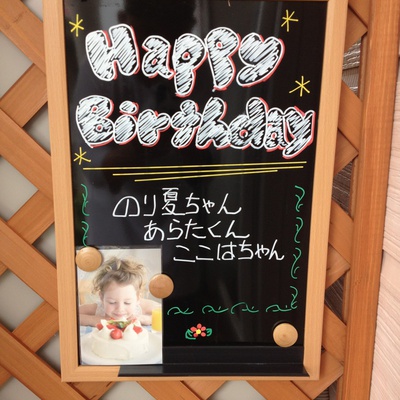 Happy
Birthday
のり夏ちゃん
あらたくん
ここはちゃん